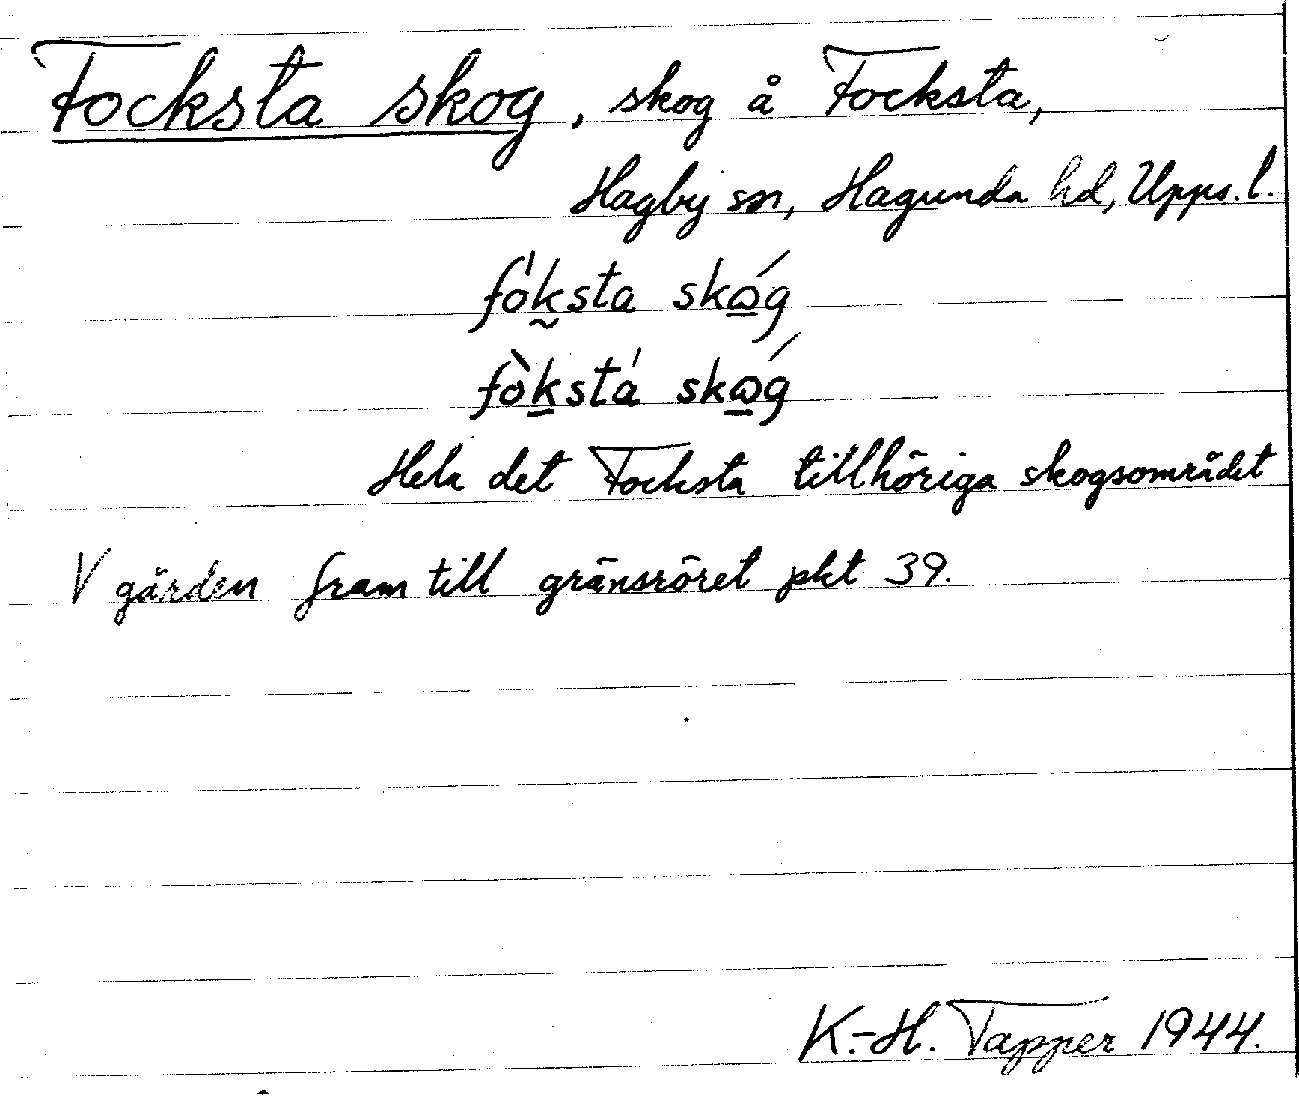 Focksta skog, skog å Focksta,
Hagby sn, Hagunda hd, Upps. l.
fo̍k̰sta skώ̲g
fòk̲sta̍ skώ̲g
Hela det Focksta tillhöriga skogsområdet
V gården fram till gränsröret pkt 39.
K.-H. Tapper 1944.